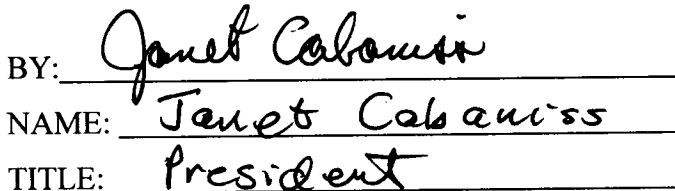 BY: Janet Cabaniss
NAME: Janet Cabaniss
TITLE: President